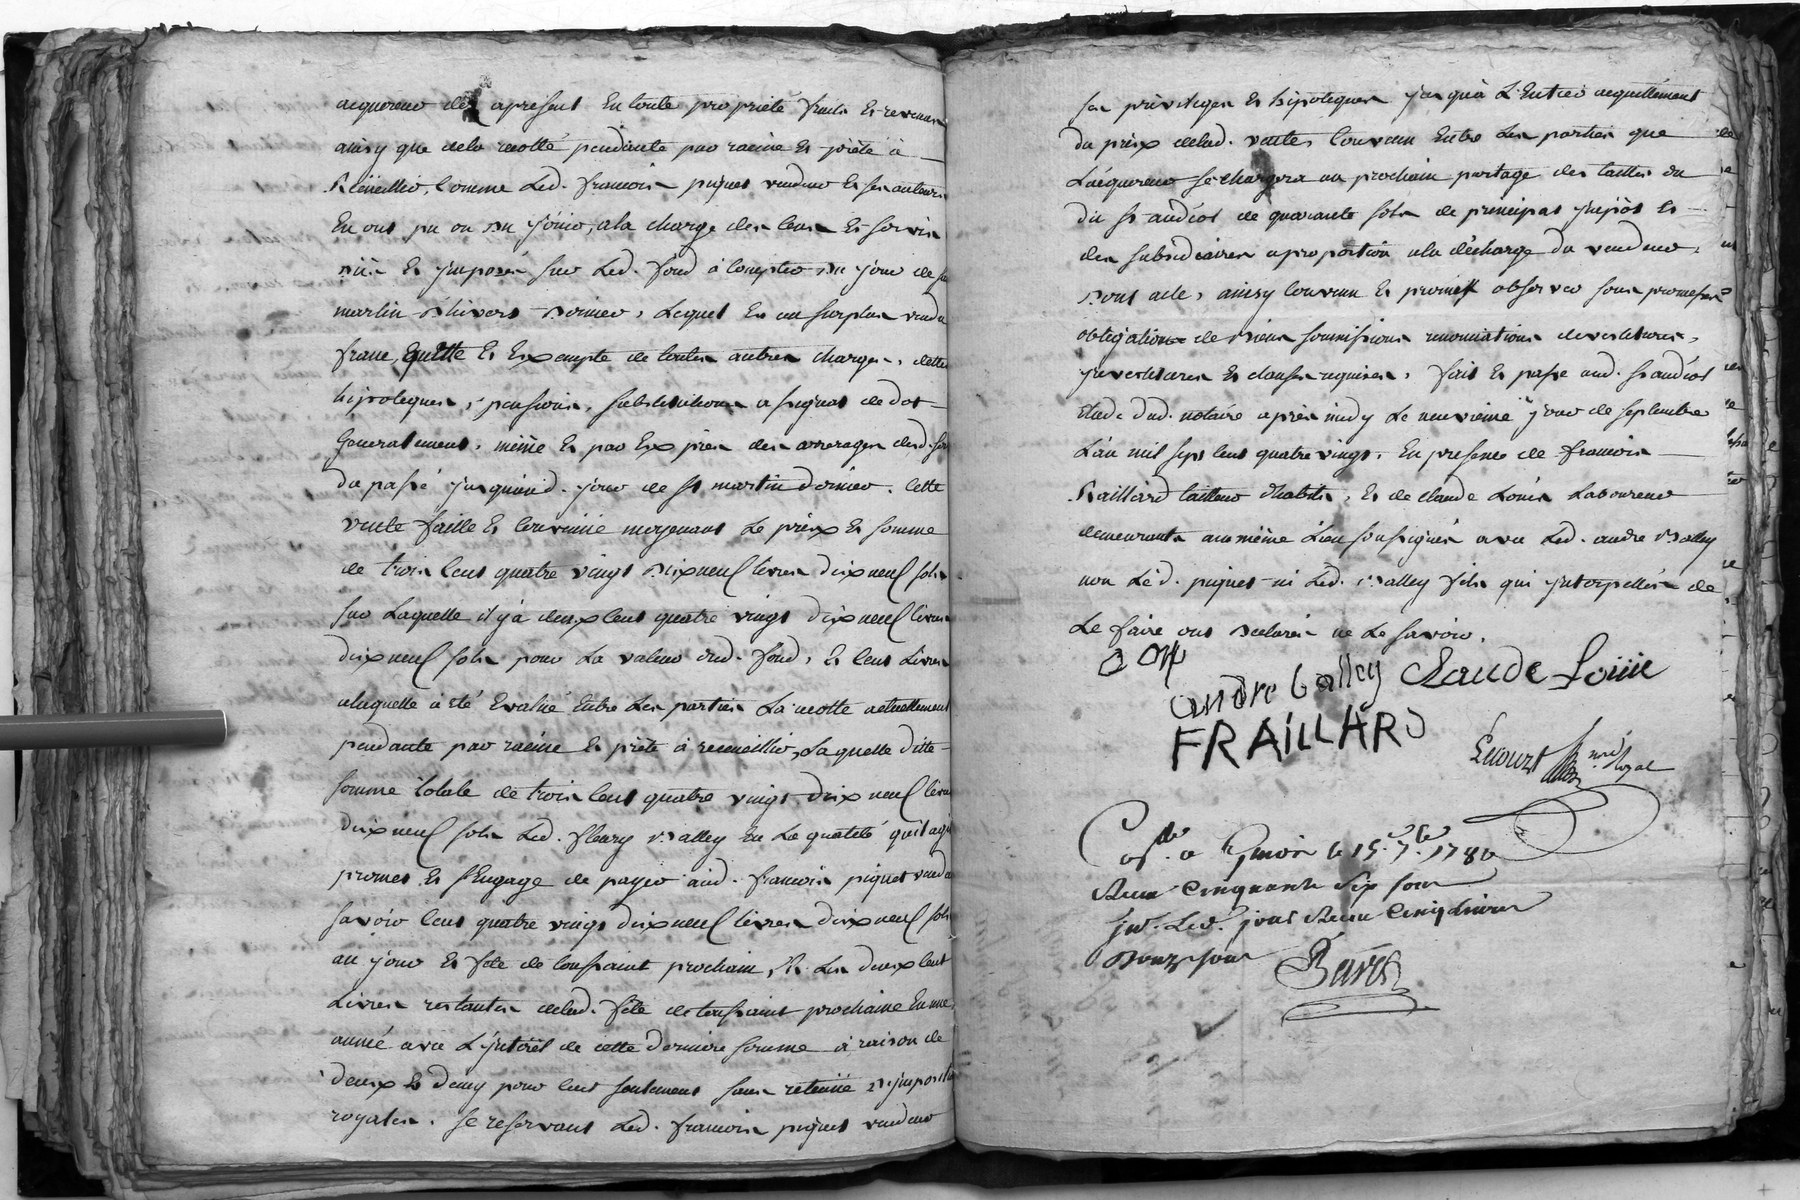 acquereur dez apresent En toute propriété fruits Et revenus
ainsy que dela recolte pendante par racine Et prête à
Receüeillir, Comme Led. francois piquet vendeur Et ses auteurs
En ont pu ou du joüir, ala charge des Cens Et servis
dûs Et jmposés sur Led. fond à Compter du jour de st
martin d'hivert dernier, Lequel Est au surplus vendu
franc, quitte Et Exempte de toutes autres charges, dettes
hipoteques, pensions, substitutions assignat de dot
Generalement, même Et par Exprès des arrerages desd. servis
du passé jusqu'aud. jour de st martin dernier. Cette
vente faitte Et Convenüe moyenant Le prix Et somme
de trois Cent quatre vingt dix neuf Livres dix neuf sols
sur Laquelle il y a deux Cent quatre vingt dix neuf Livres
dix neuf sols pour La valeur dud. fond, Et Cent Livres
alaquelle a été Evalué Entre Les parties La recolte actuellement
pendante par racine Et prête à receueillir, Laquelle ditte
somme totale de trois Cent quatre vingt dix neuf Livres
dix neuf sols Led. fleury Balley En La qualité qu'il agit
promet Et s'Engage de payer aud. francois piquet vendeur
savoir Cent quatre vingt dix neuf Livres dix neuf sols
au jour Et fete de toussaint prochain, Et Les deux Cent
Livres restantes delad. fête de toussaint prochaine En une
année avec L'jnterêt de cette derniere somme à raison de
deux Et demy pour Cent seulement sans retenüe d'jmposition
royales. se reservant Led. francois piquet vendeur
ses privileges Et hipoteques jusqu'à L'Entier acquittement
du prix delad. vente, Convenu Entre Les parties que
L'acquereur se chargera au prochain partage des tailles du
dit st andéol de quarante sols de principal jmpôt Et
des subsidiaires aproportion ala décharge du vendeur,
dont acte, ainsy Convenu Et promis observer sous promesses
obligations de Biens soumissions renonciations devestitures,
jnvestitures Et clauses requises, fait Et passé aud. st andéol
Etude dud. notaire après midy Le neuvieme jour de septembre
L'an mil sept Cent quatre vingt, En presence de francois
Raillard tailleur d'habits, Et de claude Loüis Laboureur
demeurants aumême Lieu soussignés avec Led. andre Balley
non Led. piquet ni Led. Balley fils qui jnterpellés de
Le faire ont declarés ne Le savoir.
andre balley Claude Loüii
FRAILLARD
notre Royal
Contlé a Givors le 15. 7bre 1780
Recu Cinquante six sous
jns. Led. jour Recu Cinq Livres
Douze sous